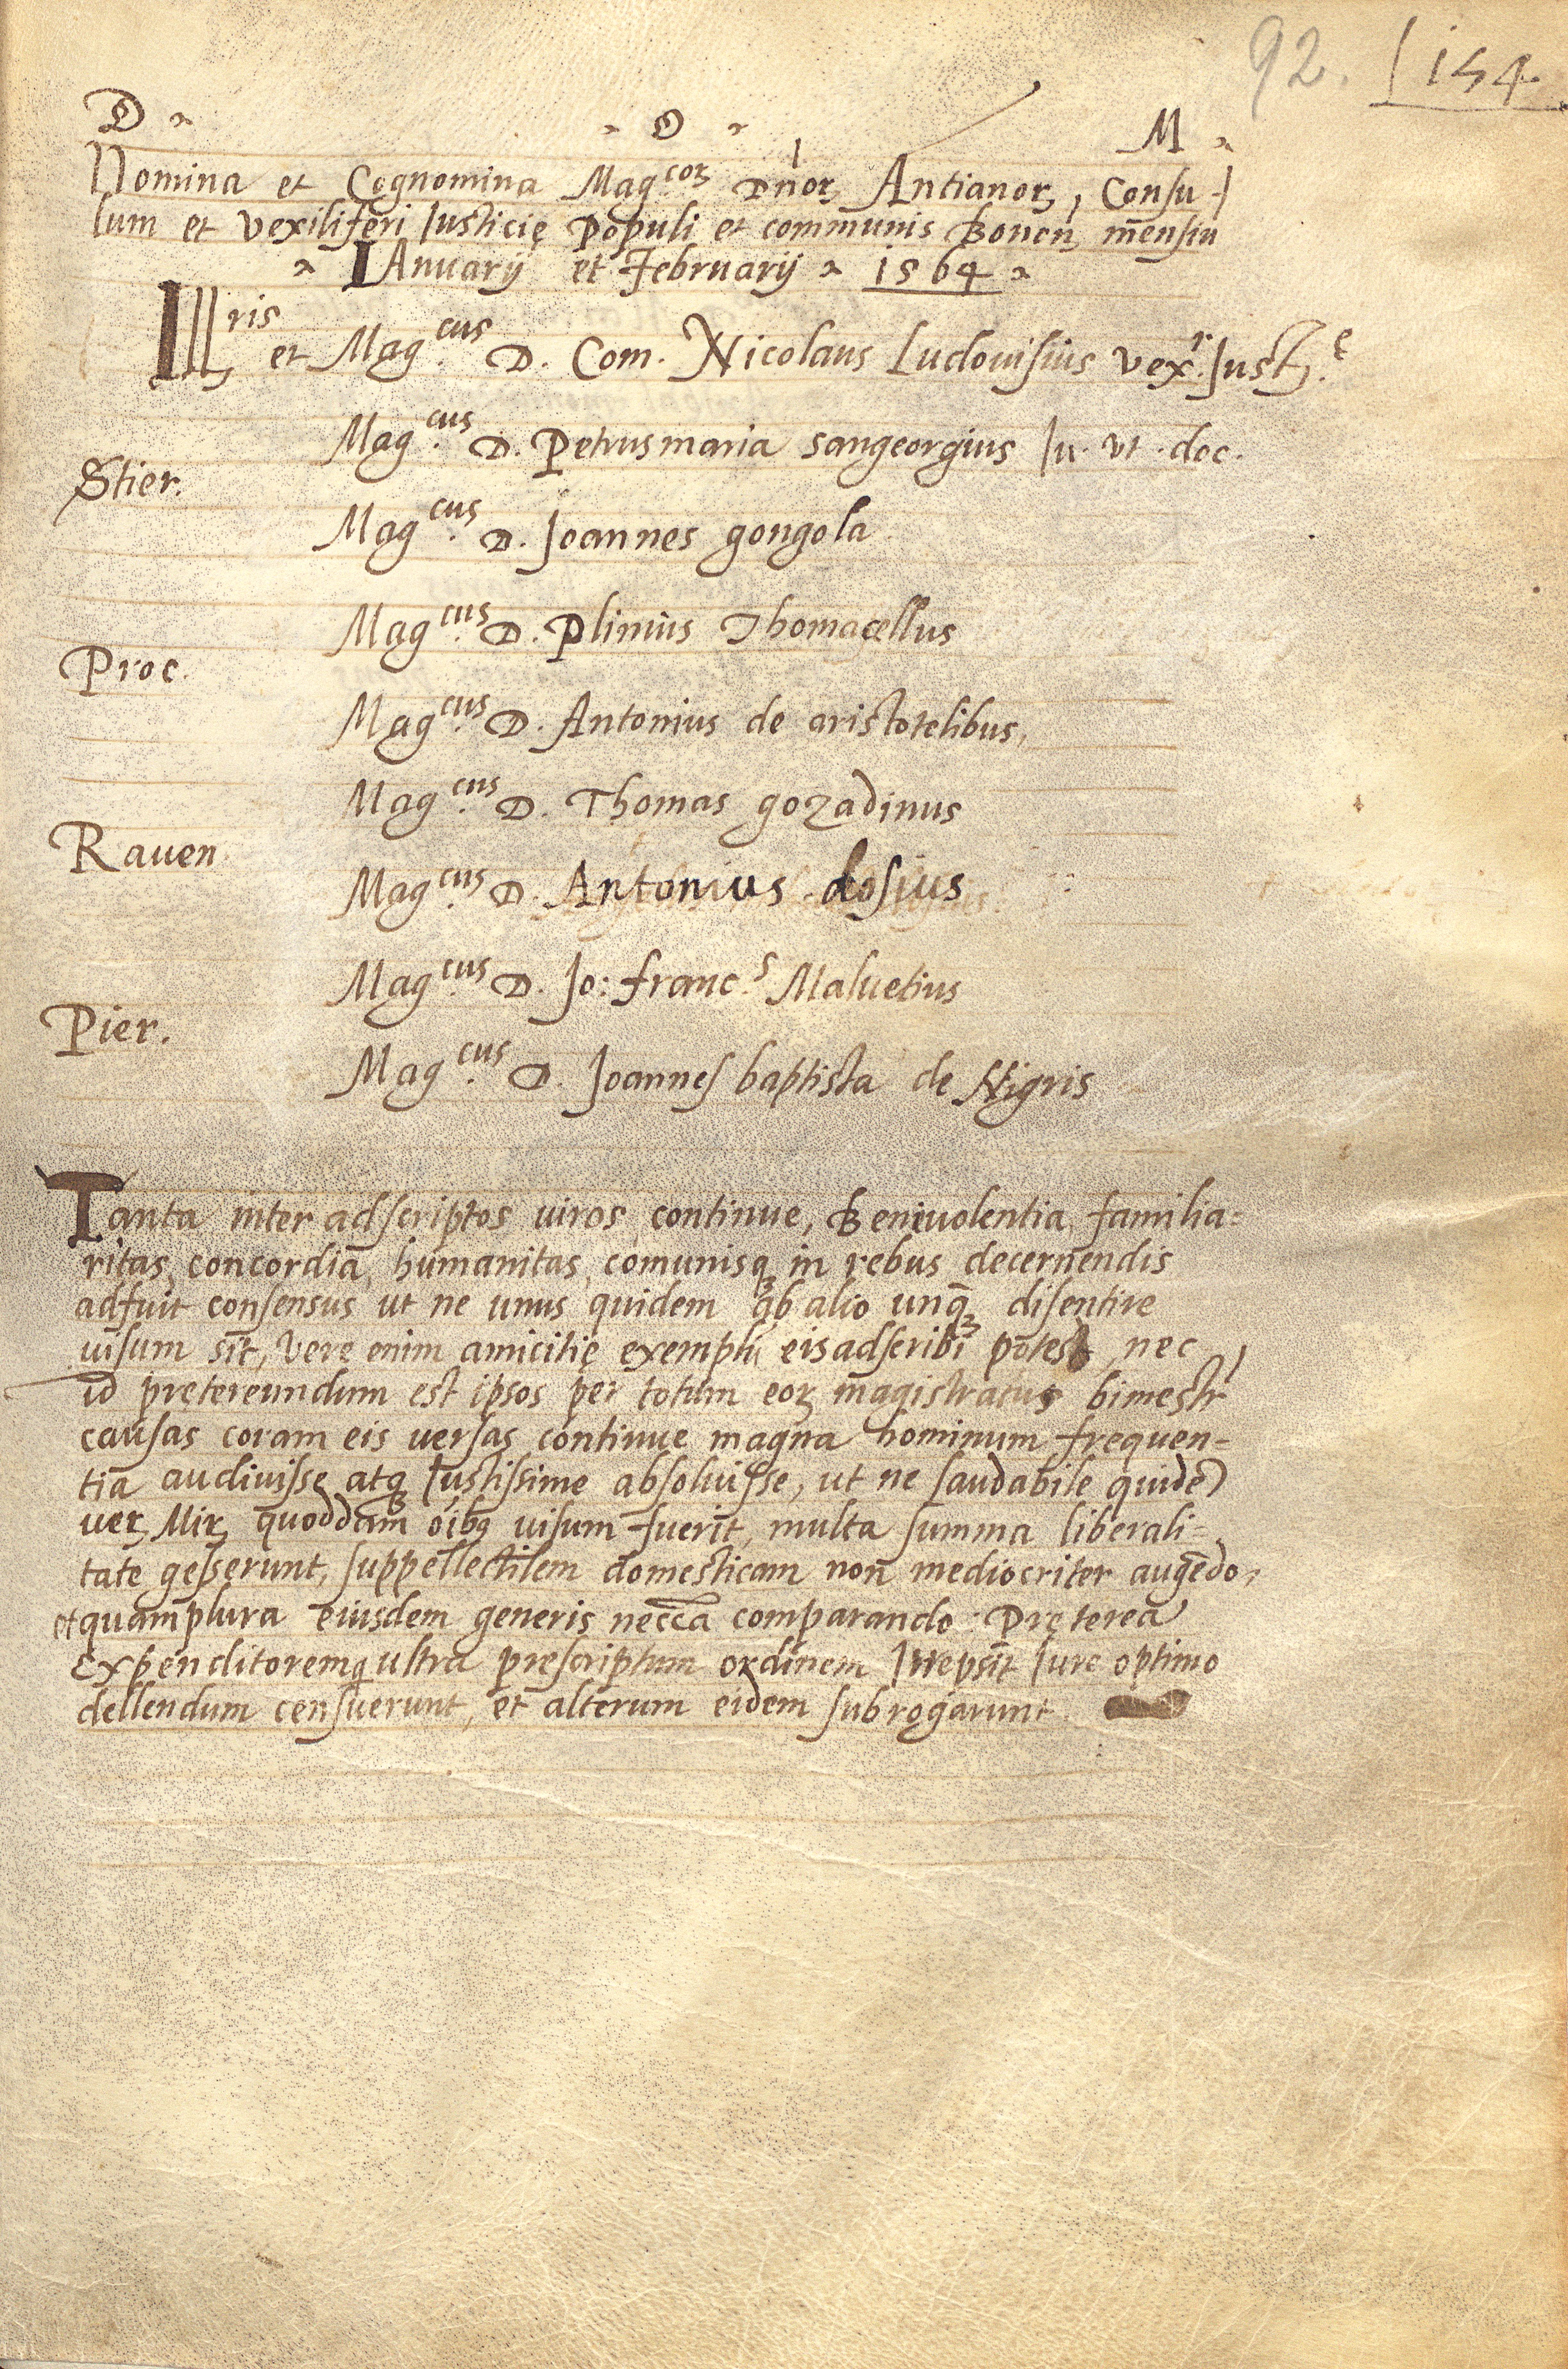 92. 154
D. D. M.
Nomina et Cognomina Mag.corꝝ Dnorꝝ Antianorꝝ, Consu-
lum et vexiliferi Iusticię Populi et communis Bonon̄ mensiū
IAnuarij et Februarij 1564
Ill.ris et Mag.cus D. Com. Nicolaus Ludouisius vex.r Iust.ę
Mag.cus D. Petrusmaria sangeorgius Iu. vt. doc.
Stier.
Mag.cus D. Joannes gongola
Mag.cus D. Plinius Thomacellus
Proc.
Mag.cus D. Antonius de aristotelibus,
Mag.cus D. Thomas gozadinus
Rauen
Mag.cus D. Antonius dosius
Mag.cus D. Jo: franc.s Maluetius
Pier.
Mag.cus D. Joannes baptista de Nigris
Tanta inter adscriptos viros continue, Beniuolentia familia=
ritas, concordia, humanitas, comunisqȝ in rebus decernendis
adfuit consensus ut ne unus quidem ab alio unqȝ disentire
uisum sit, vere enim amicitię exemplū eis adscribi potest, nec
id pretereundum est ipsos per totum eorꝝ magistratus bimestr
causas coram eis versas continue magna hominum frequen=
tia audiuisse atqȝ Iustissime absoluisse, ut ne laudabile quidē
verꝝ Mirꝝ quoddam oībȝ uisum fuerit, multa summa liberali=
tate gesserunt, suppellectilem domesticam non mediocriter augēdo,
et quamplura eiusdem generis necc̄a comparando: Pręterea
Expenditoremqȝ ultra prescriptum ordinem Irrepsit Iure optimo
dellendum censuerunt, et alterum eidem subrogarunt.